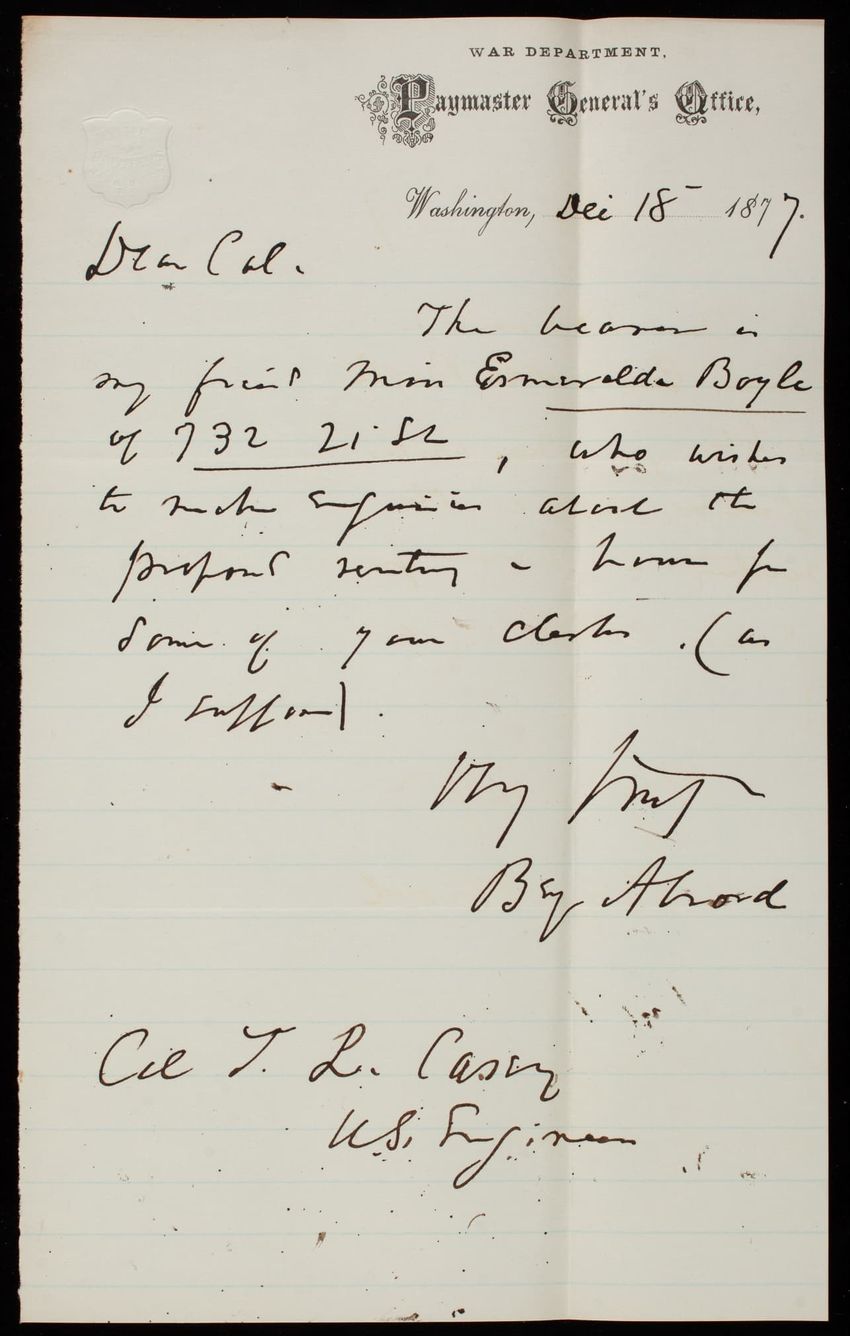 WAR DEPARTMENT,
Paymaster General's Office,
Washington, Dec 18 1877.
Dear Col.
The bearer is
my friend Miss Esmeralda Boyle
of 732 21 St, who wishes
to make enquiries about the
proposed renting a house for
some of your clerks. (as
I suppose).
Very
Benj Alvord
Col T. L. Casey
U.S. Engineers